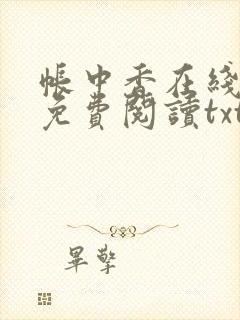 帳中香在綫
免費閱讀txt
畢擎